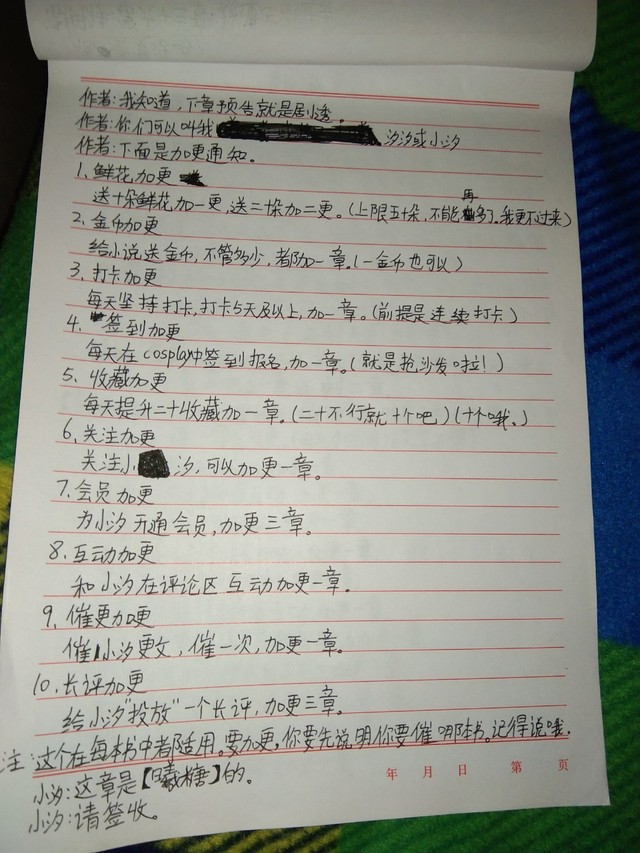 作者:我知道,下章预告就是剧透。
作者:你们可以叫我 汐汐或小汐
作者:下面是加更通知。
1、鲜花加更
送十朵鲜花加一更,送二十朵加二更。(上限五十朵,不能再多了。我更不过来)
2、金币加更
给小说送金币,不管多少,都加一章。(一金币也可以)
3、打卡加更
每天坚持打卡,打卡5天及以上,加一章。(前提是连续打卡)
4、签到加更
每天在cosplay中签到报名,加一章。(就是抢沙发啦!)
5、收藏加更
每天提升二十收藏加一章。(二十不行就十个吧)(十个哦、)
6、关注加更
关注小 汐,可以加更一章。
7、会员加更
为小汐开通会员,加更三章。
8、互动加更
和小汐在评论区互动加更一章。
9、催更加更
催小汐更文,催一次,加更一章。
10、长评加更
给小汐"投放"一个长评,加更三章。
注:这个在每本书中都适用。要加更,你要先说明你要催哪本书。记得说哦.
小汐:这章是【曦糖】的。
年 月 日 第 页
小汐:请签收。